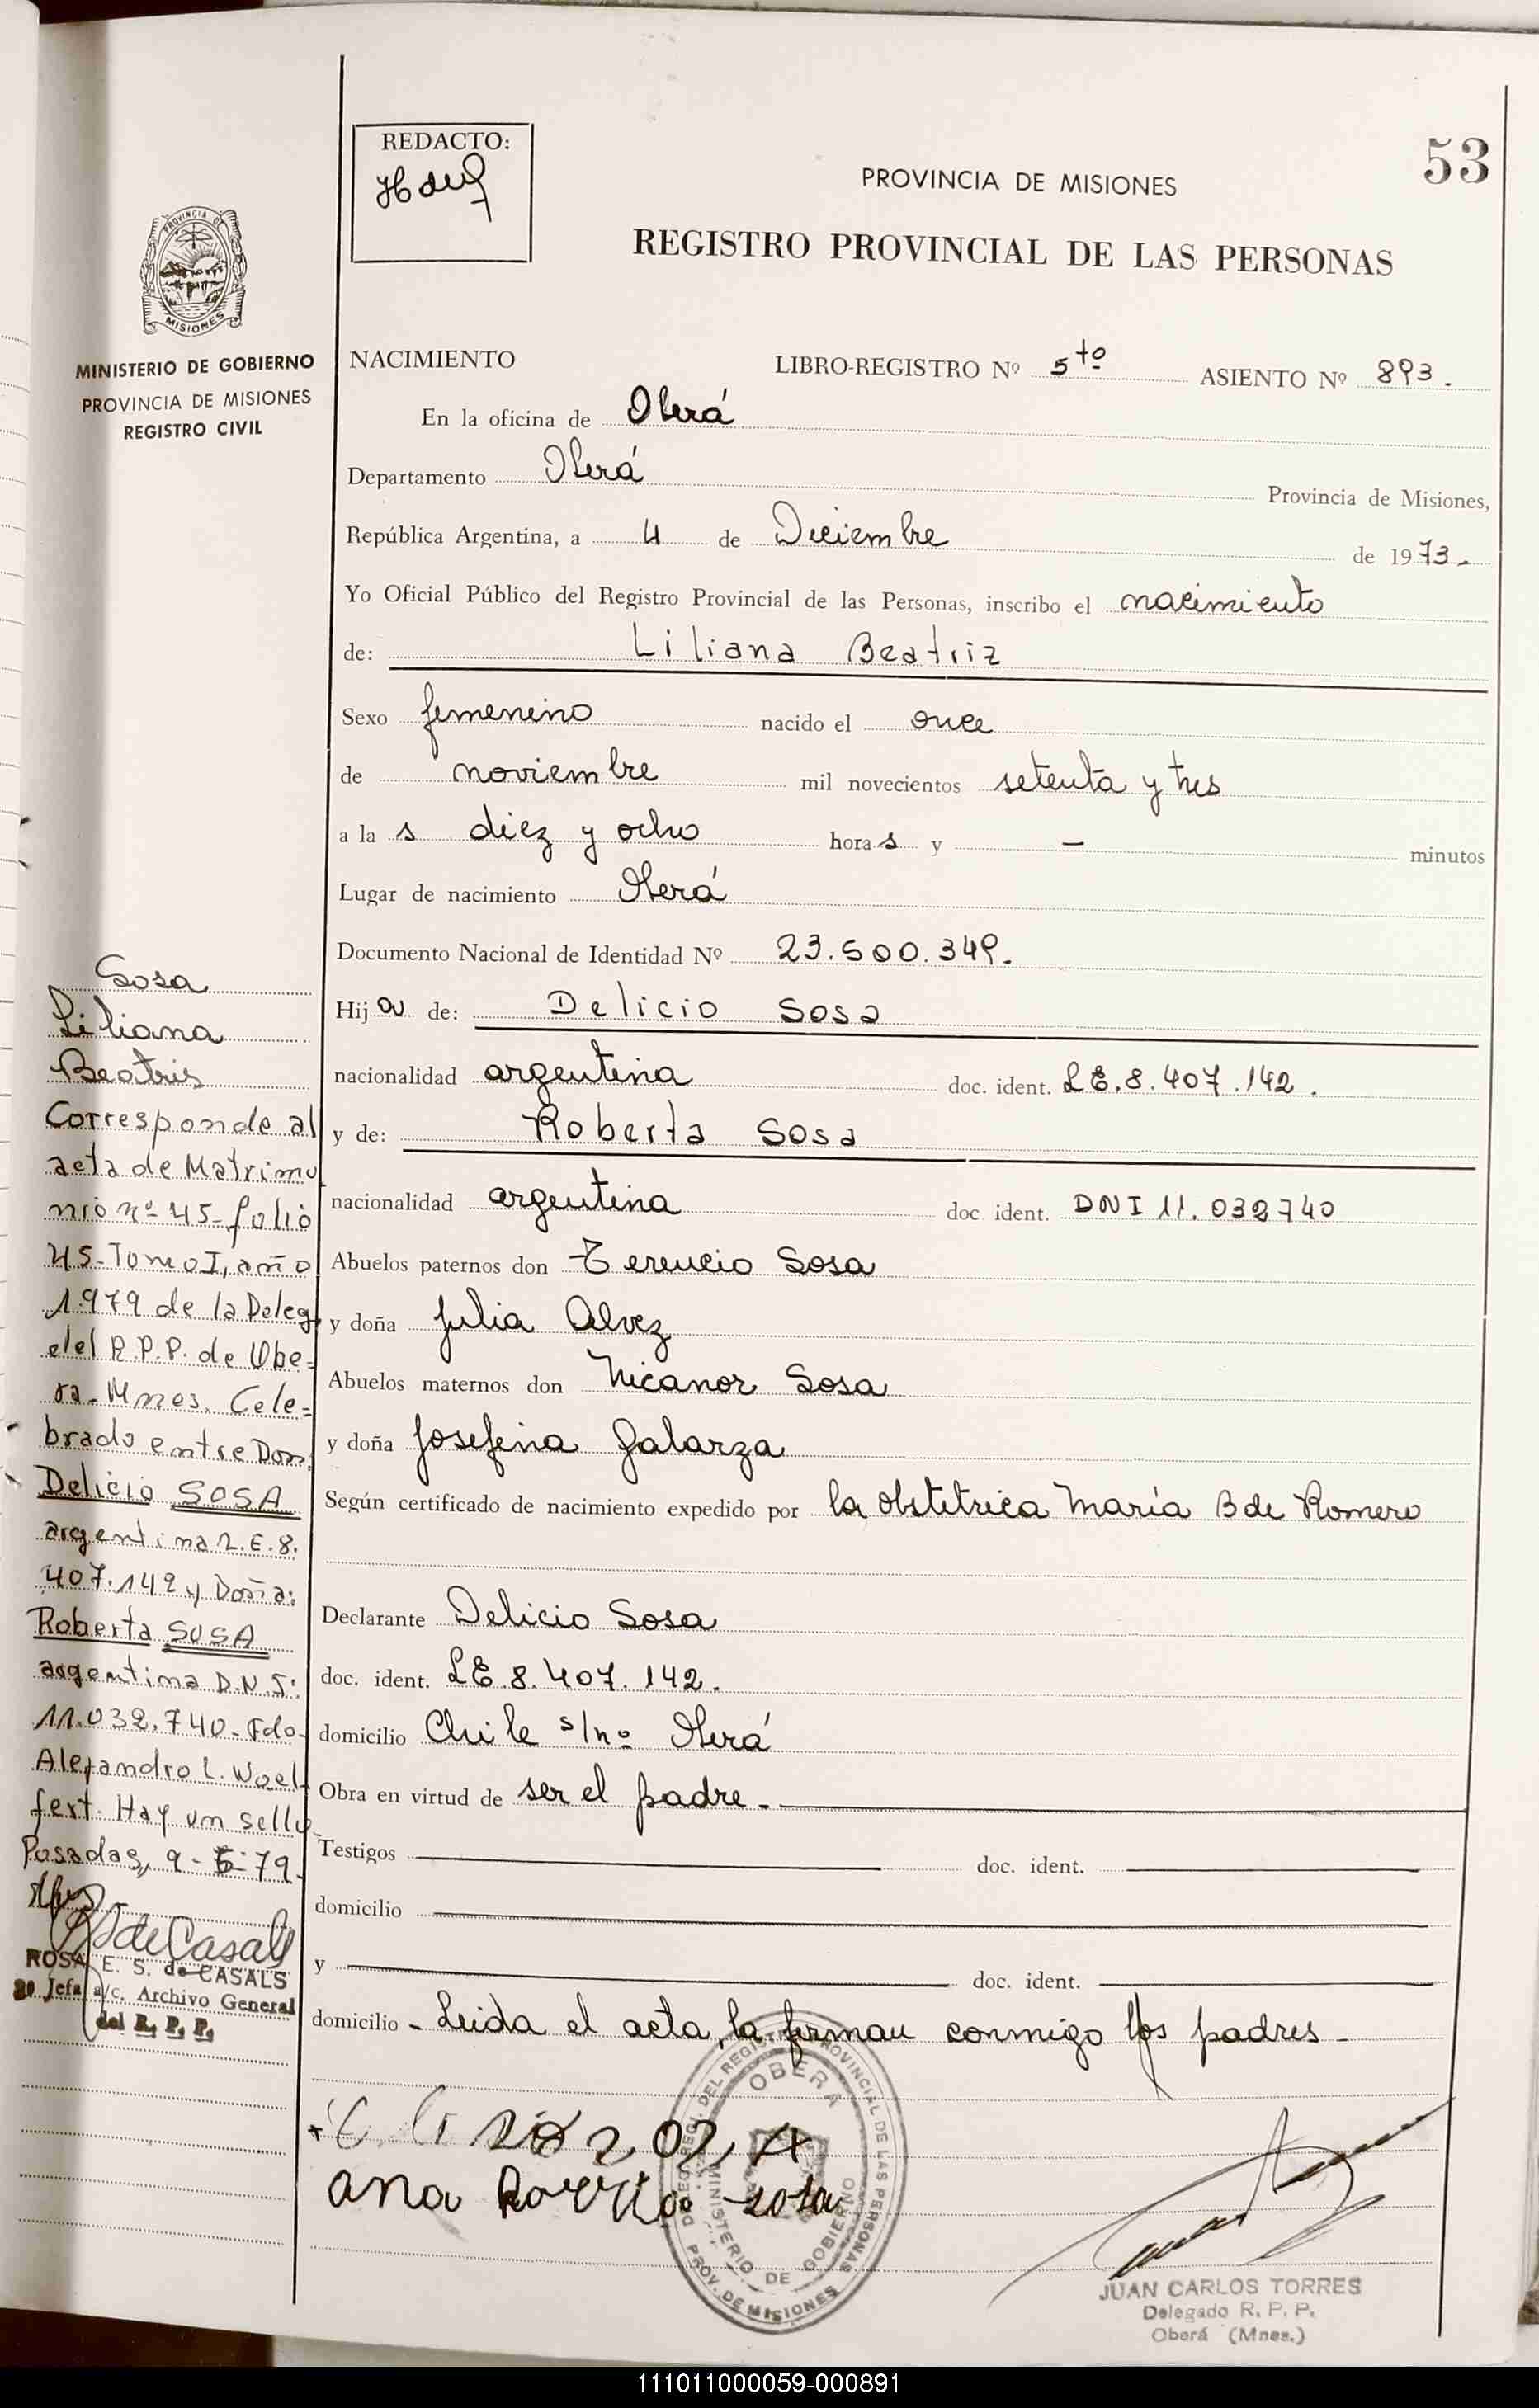 REDACTO:
53
PROVINCIA DE MISIONES
REGISTRO PROVINCIAL DE LAS PERSONAS
PROVINCIA DE
MISIONES
MINISTERIO DE GOBIERNO
PROVINCIA DE MISIONES
REGISTRO CIVIL
NACIMIENTO LIBRO-REGISTRO Nº 5to ASIENTO Nº 893.
En la oficina de Oberá
Departamento Oberá Provincia de Misiones,
República Argentina, a 4 de Diciembre de 1973.
Yo Oficial Público del Registro Provincial de las Personas, inscribo el nacimiento
de: Liliana Beatriz
Sexo femenino nacido el once
de noviembre mil novecientos setenta y tres
a la s diez y ocho hora s y — minutos
Lugar de nacimiento Oberá
Documento Nacional de Identidad Nº 23.500.349.
Hij a de: Delicio Sosa
nacionalidad argentina doc. ident. LE.8.407.142.
y de: Roberta Sosa
nacionalidad argentina doc ident. DNI 11.032740
Abuelos paternos don Terencio Sosa
y doña Julia Alvez
Abuelos maternos don Nicanor Sosa
y doña Josefina Galarza
Según certificado de nacimiento expedido por la obstetrica María B de Romero
Declarante Delicio Sosa
doc. ident. LE 8.407.142.
domicilio Chile s/nº Oberá
Obra en virtud de ser el padre.
Testigos doc. ident.
domicilio
y doc. ident.
domicilio - Leida el acta, la firman conmigo los padres -
Sosa
Liliana
Beatris
Corresponde al
acta de Matrimo
nio nº 45-folio
45-Tomo I, año
1.979 de la Deleg.
del R.P.P. de Obe=
ra-Mnes. Cele=
brado entre Don
Delicio SOSA
argentina L.E.8.
407.142 y Doña:
Roberta SOSA
argentina D.N.I:
11.032.740-Fdo-
Alejandro L. Woel-
fert. Hay un sello-
Posadas, 9-5-79.
ROSA E. S. de CASALS
2º Jefa a/c. Archivo General
del R. P. P.
ana Sosa
DELEG. REGI. DEL REGISTRO PROVINCIAL DE LAS PERSONAS
OBERA
MINISTERIO DE GOBIERNO
PROV. DE MISIONES
JUAN CARLOS TORRES
Delegado R. P. P.
Oberá (Mnes.)
111011000059-000891